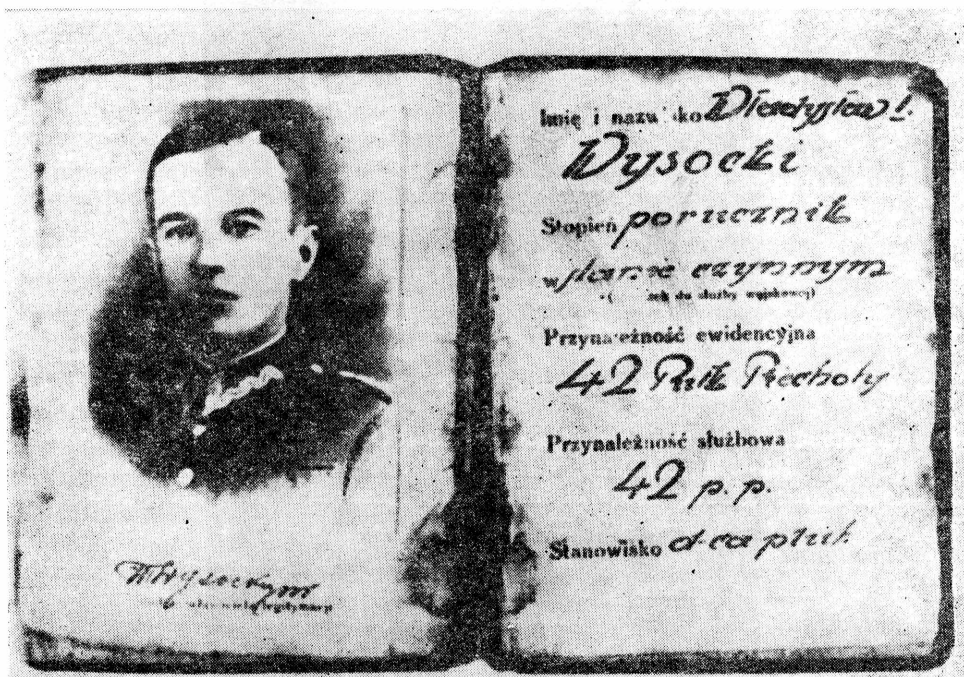 Imię i nazwisko Władysław I.
Wysocki
Stopień porucznik
w stanie czynnym
do służby wojskowej)
Przynależność ewidencyjna
42 Pułk Piechoty
Przynależność służbowa
42 p.p.
Stanowisko d-ca plut.